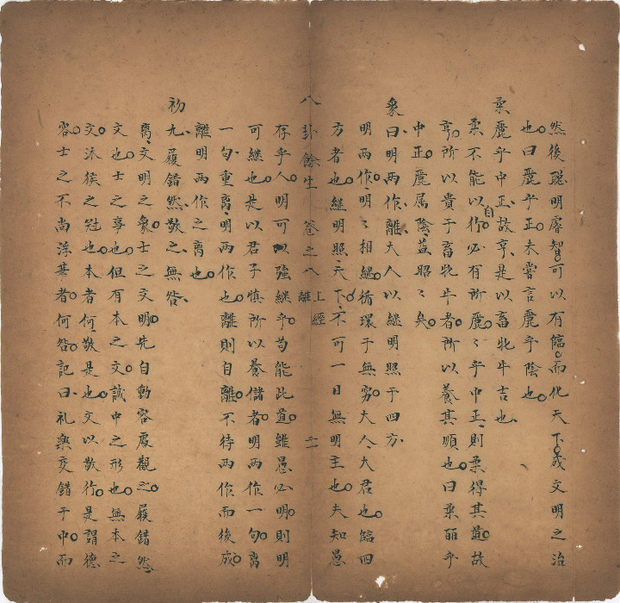 然後聰明睿智可以有臨而化天下成文明之治
也曰麗乎正未嘗言麗乎陰也
柔麗乎中正故亨是以畜牝牛吉也
柔不能以自作必有所麗麗乎中正則柔得其道故
亨所以貴于畜牝牛者所以養其順也曰柔丽乎
中正麗属陰益昭昭矣
象曰明兩作離大人以繼明照于四方
明兩作明明相繼循環于無窮大人大君也臨四
方者也繼明照天下不可一日無明主也夫知愚
八卦餘生 卷之八 上經 離 二
存乎人明可以強繼乎苟能此道雖愚必明則明
可繼也是以君子慎所以養儲者明兩作一句离
一句重离明兩作也離則自離不待兩作而後成
離明兩作之离也
初九履錯然敬之無咎
离文明之象士之文明先自動容處觀之履錯然
文也士之事也但有本之文誠中之形也無本之
文派族之冠也本者何敬是也文以敬行是謂德
容士之不尚浮華者何咎記曰礼樂交錯于中而